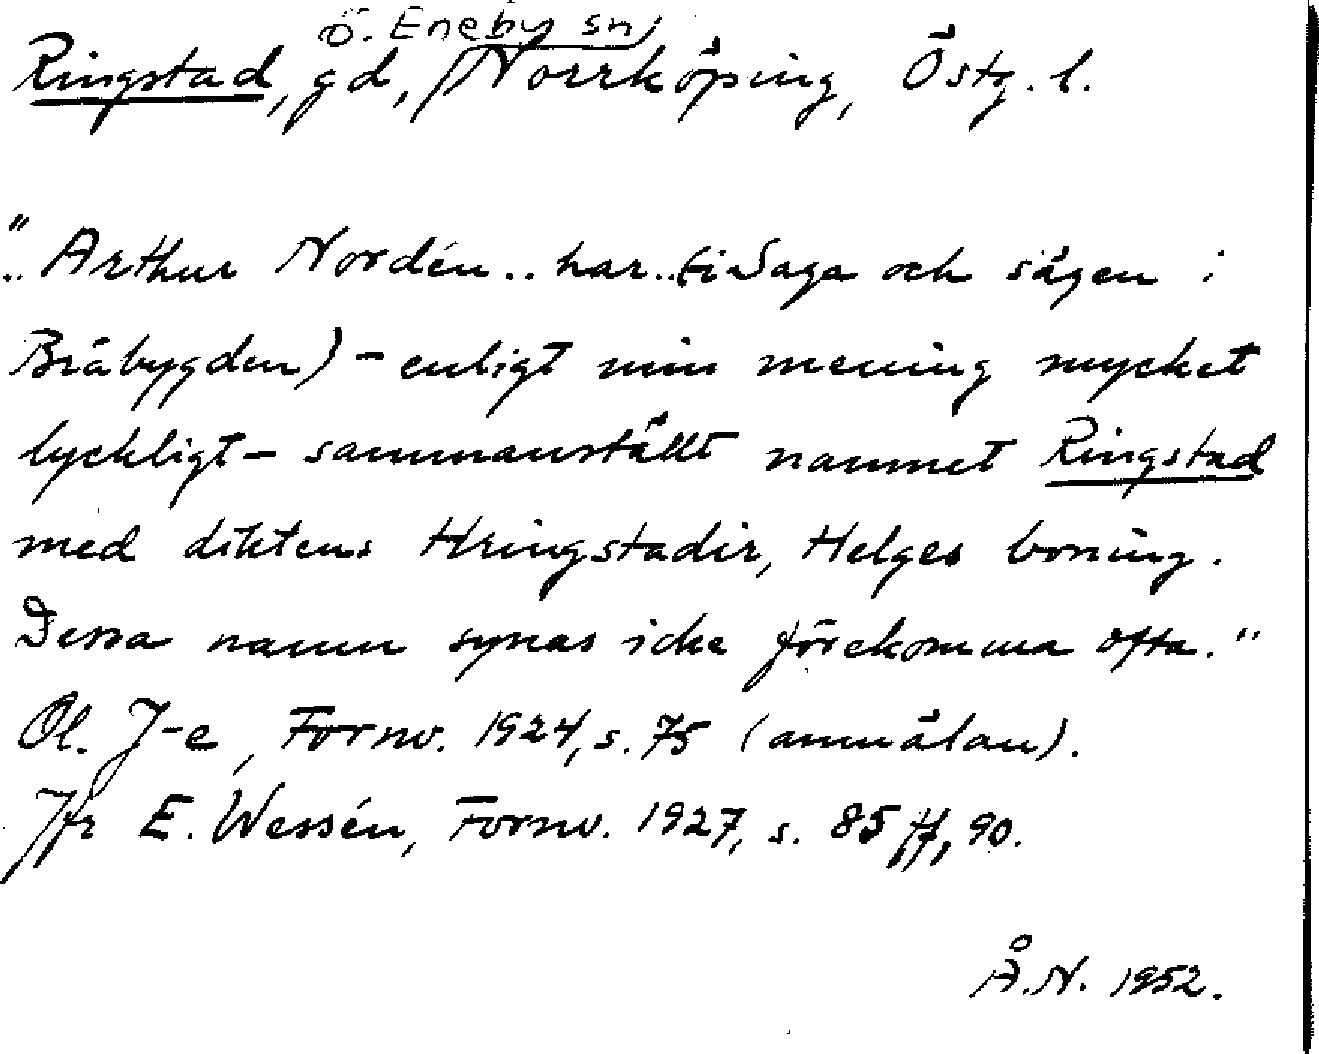 Ö. Eneby sn,
Ringstad, gd, Norrköping, Östg. l.
".. Arthur Nordén .. har .. (i Saga och sägen i
Bråbygden) - enligt min mening mycket
lyckligt - sammanställt namnet Ringstad
med diktens Hringstadir, Helges boning.
Dessa namn synas icke förekomma ofta."
Ol. J-e, Fornv. 1924, s. 75 (anmälan).
Jfr E. Wessén, Fornv. 1927, s. 85 ff, 90.
Å.N. 1952.